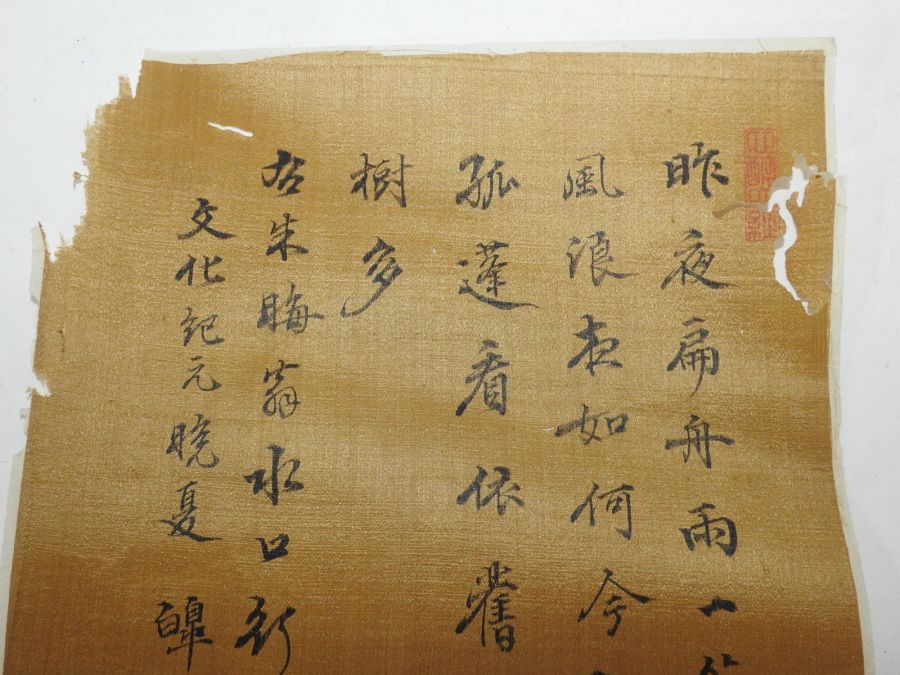 昨夜扁舟雨一
風浪夜如何今
孤蓬看依舊
樹多
右朱晦翁水口行
文化記元晚夏 皐